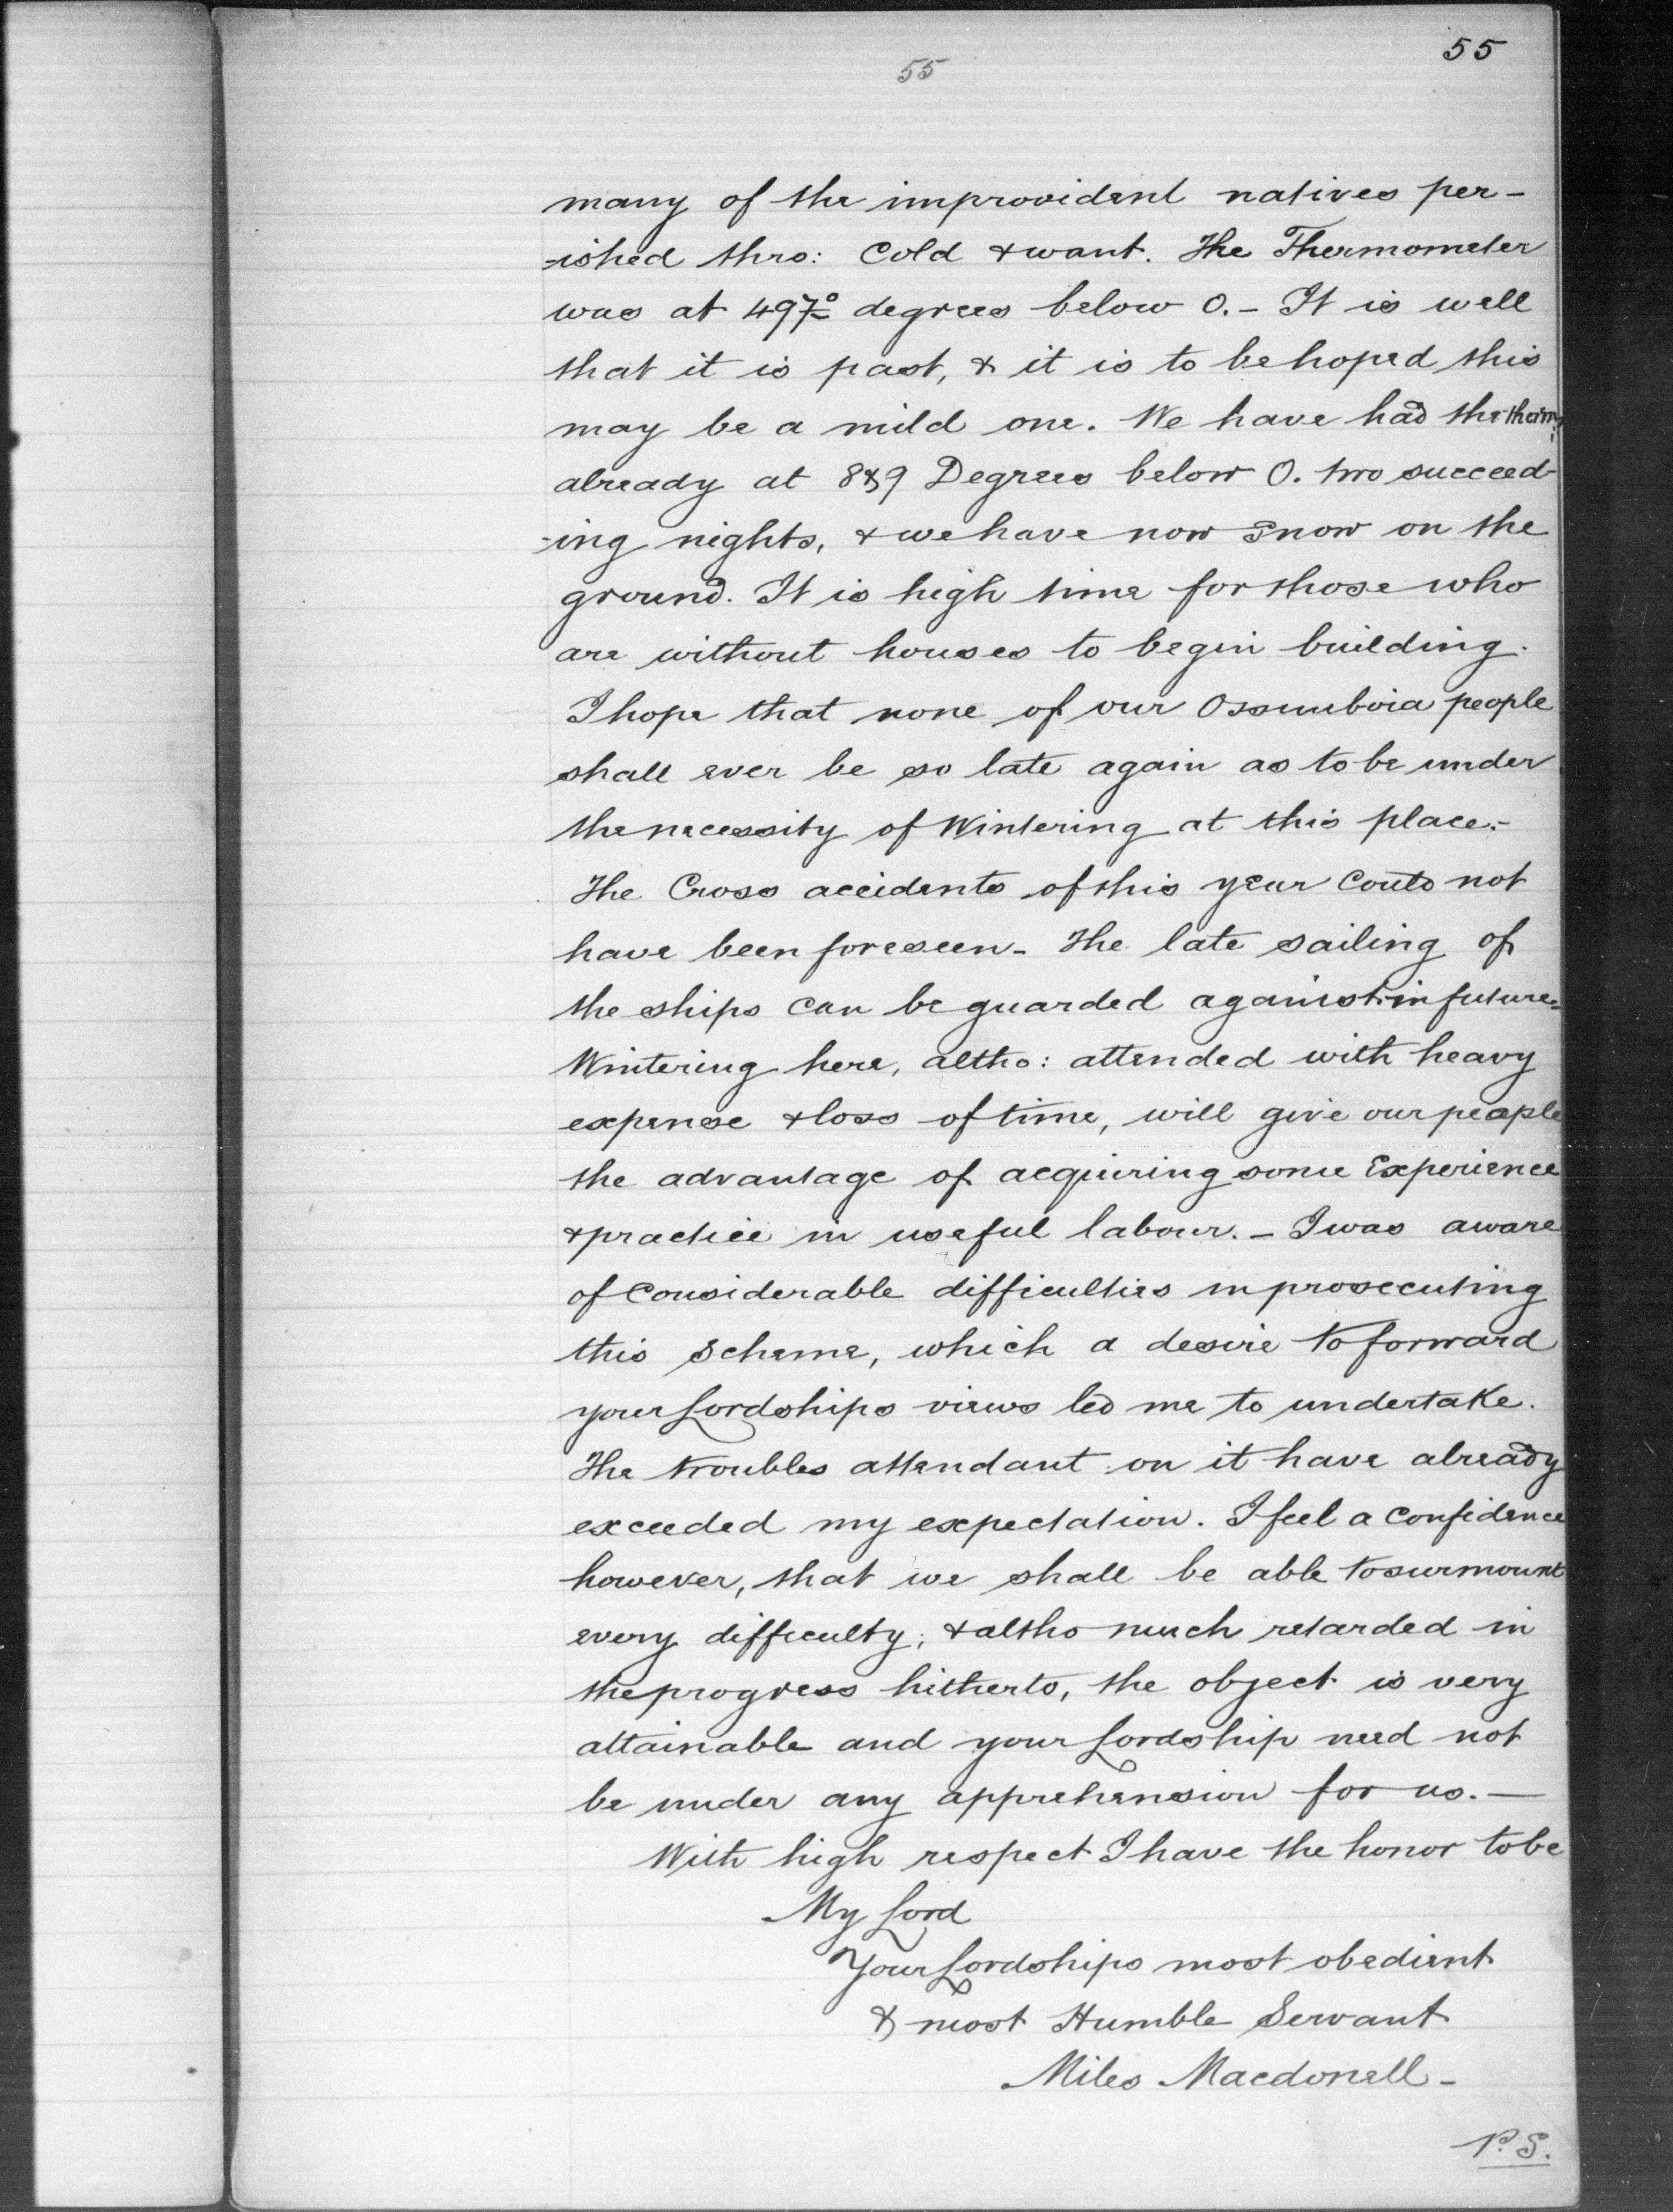 55
55
many of the improvident natives per-
-ished thro: Cold & want. The Thermometer
was at 49 7° degrees below 0. - It is well
that it is past, & it is to be hoped this
may be a mild one. We have had the therm:
already at 8 & 9 Degrees below 0. two succeed-
-ing nights, & we have now snow on the
ground. It is high time for those who
are without houses to begin building.
I hope that none of our Ossiniboia people
shall ever be so late again as to be under
the necessity of Wintering at this place.-
The Cross accidents of this year Could not
have been foreseen - The late sailing of
the ships can be guarded against in future=
Wintering here, altho: attended with heavy
expense & loss of time, will give our people
the advantage of acquiring some Experience
& practice in useful labour. - I was aware
of Considerable difficulties in prosecuting
this Scheme, which a desire to forward
your Lordships views led me to undertake.
The troubles attendant on it have already
exceeded my expectation. I feel a Confidence
however, that we shall be able to surmount
every difficulty; & altho much retarded in
the progress hitherto, the object is very
attainable and your Lordship need not
be under any apprehension for us. -
With high respect I have the honor to be
My Lord
Your Lordships most obedient
& most Humble Servant
Miles Macdonell -
P.S.